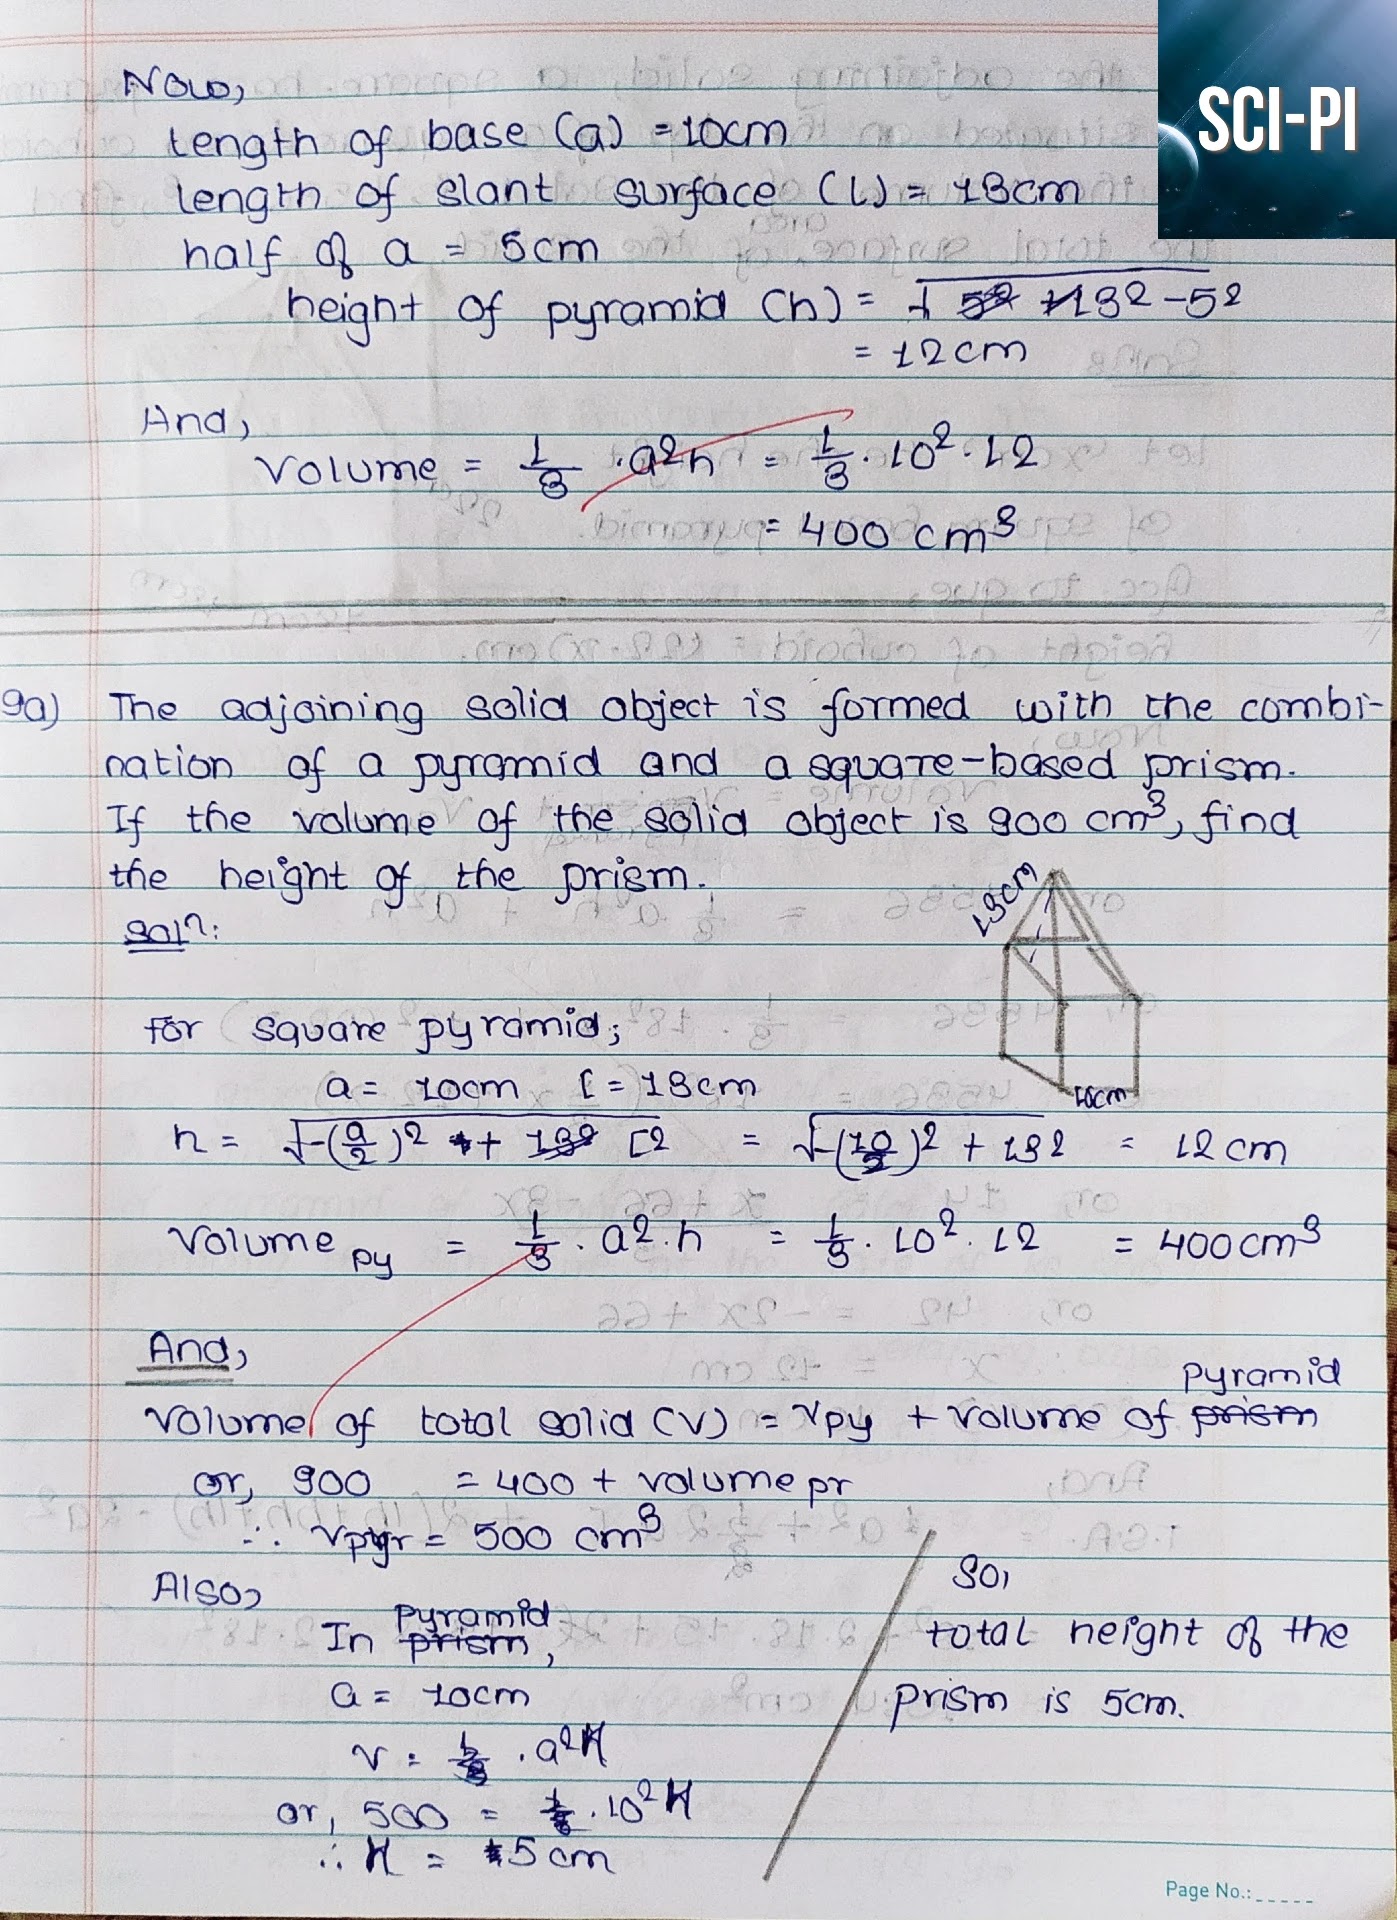 SCI-PI
Now,
length of base (a) = 10cm
length of slant surface (l) = 13cm
half of a = 5cm
height of pyramid (h) = √13² - 5²
= 12cm
And,
Volume = 1/3 . a²h = 1/3 . 10² . 12
= 400 cm³
9a) The adjoining solid object is formed with the combi-
nation of a pyramid and a square-based prism.
If the volume of the solid object is 900 cm³, find
the height of the prism.
Solⁿ:
13cm
10cm
for square pyramid;
a = 10cm l = 13cm
h = √-(a/2)² + l² = √-(10/2)² + 13² = 12cm
Volume py = 1/3 . a² . h = 1/3 . 10² . 12 = 400cm³
And,
Volume of total solid (V) = Vpy + Volume of prism pyramid
or, 900 = 400 + volume pr
∴ Vpr = 500 cm³
Also,
In prism pyramid,
a = 10cm
V = . a²H
or, 500 = . 10²H
∴ H = 5cm
So,
total height of the
prism is 5cm.
Page No.: